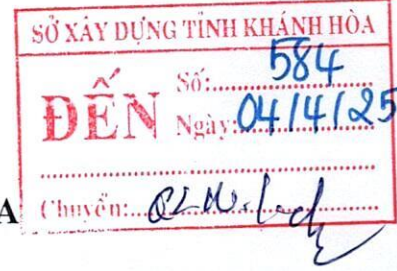 SỞ XÂY DỰNG TỈNH KHÁNH HÒA
ĐẾN
Số:.......584.......
Ngày:04/4/25
A
Chuyển: